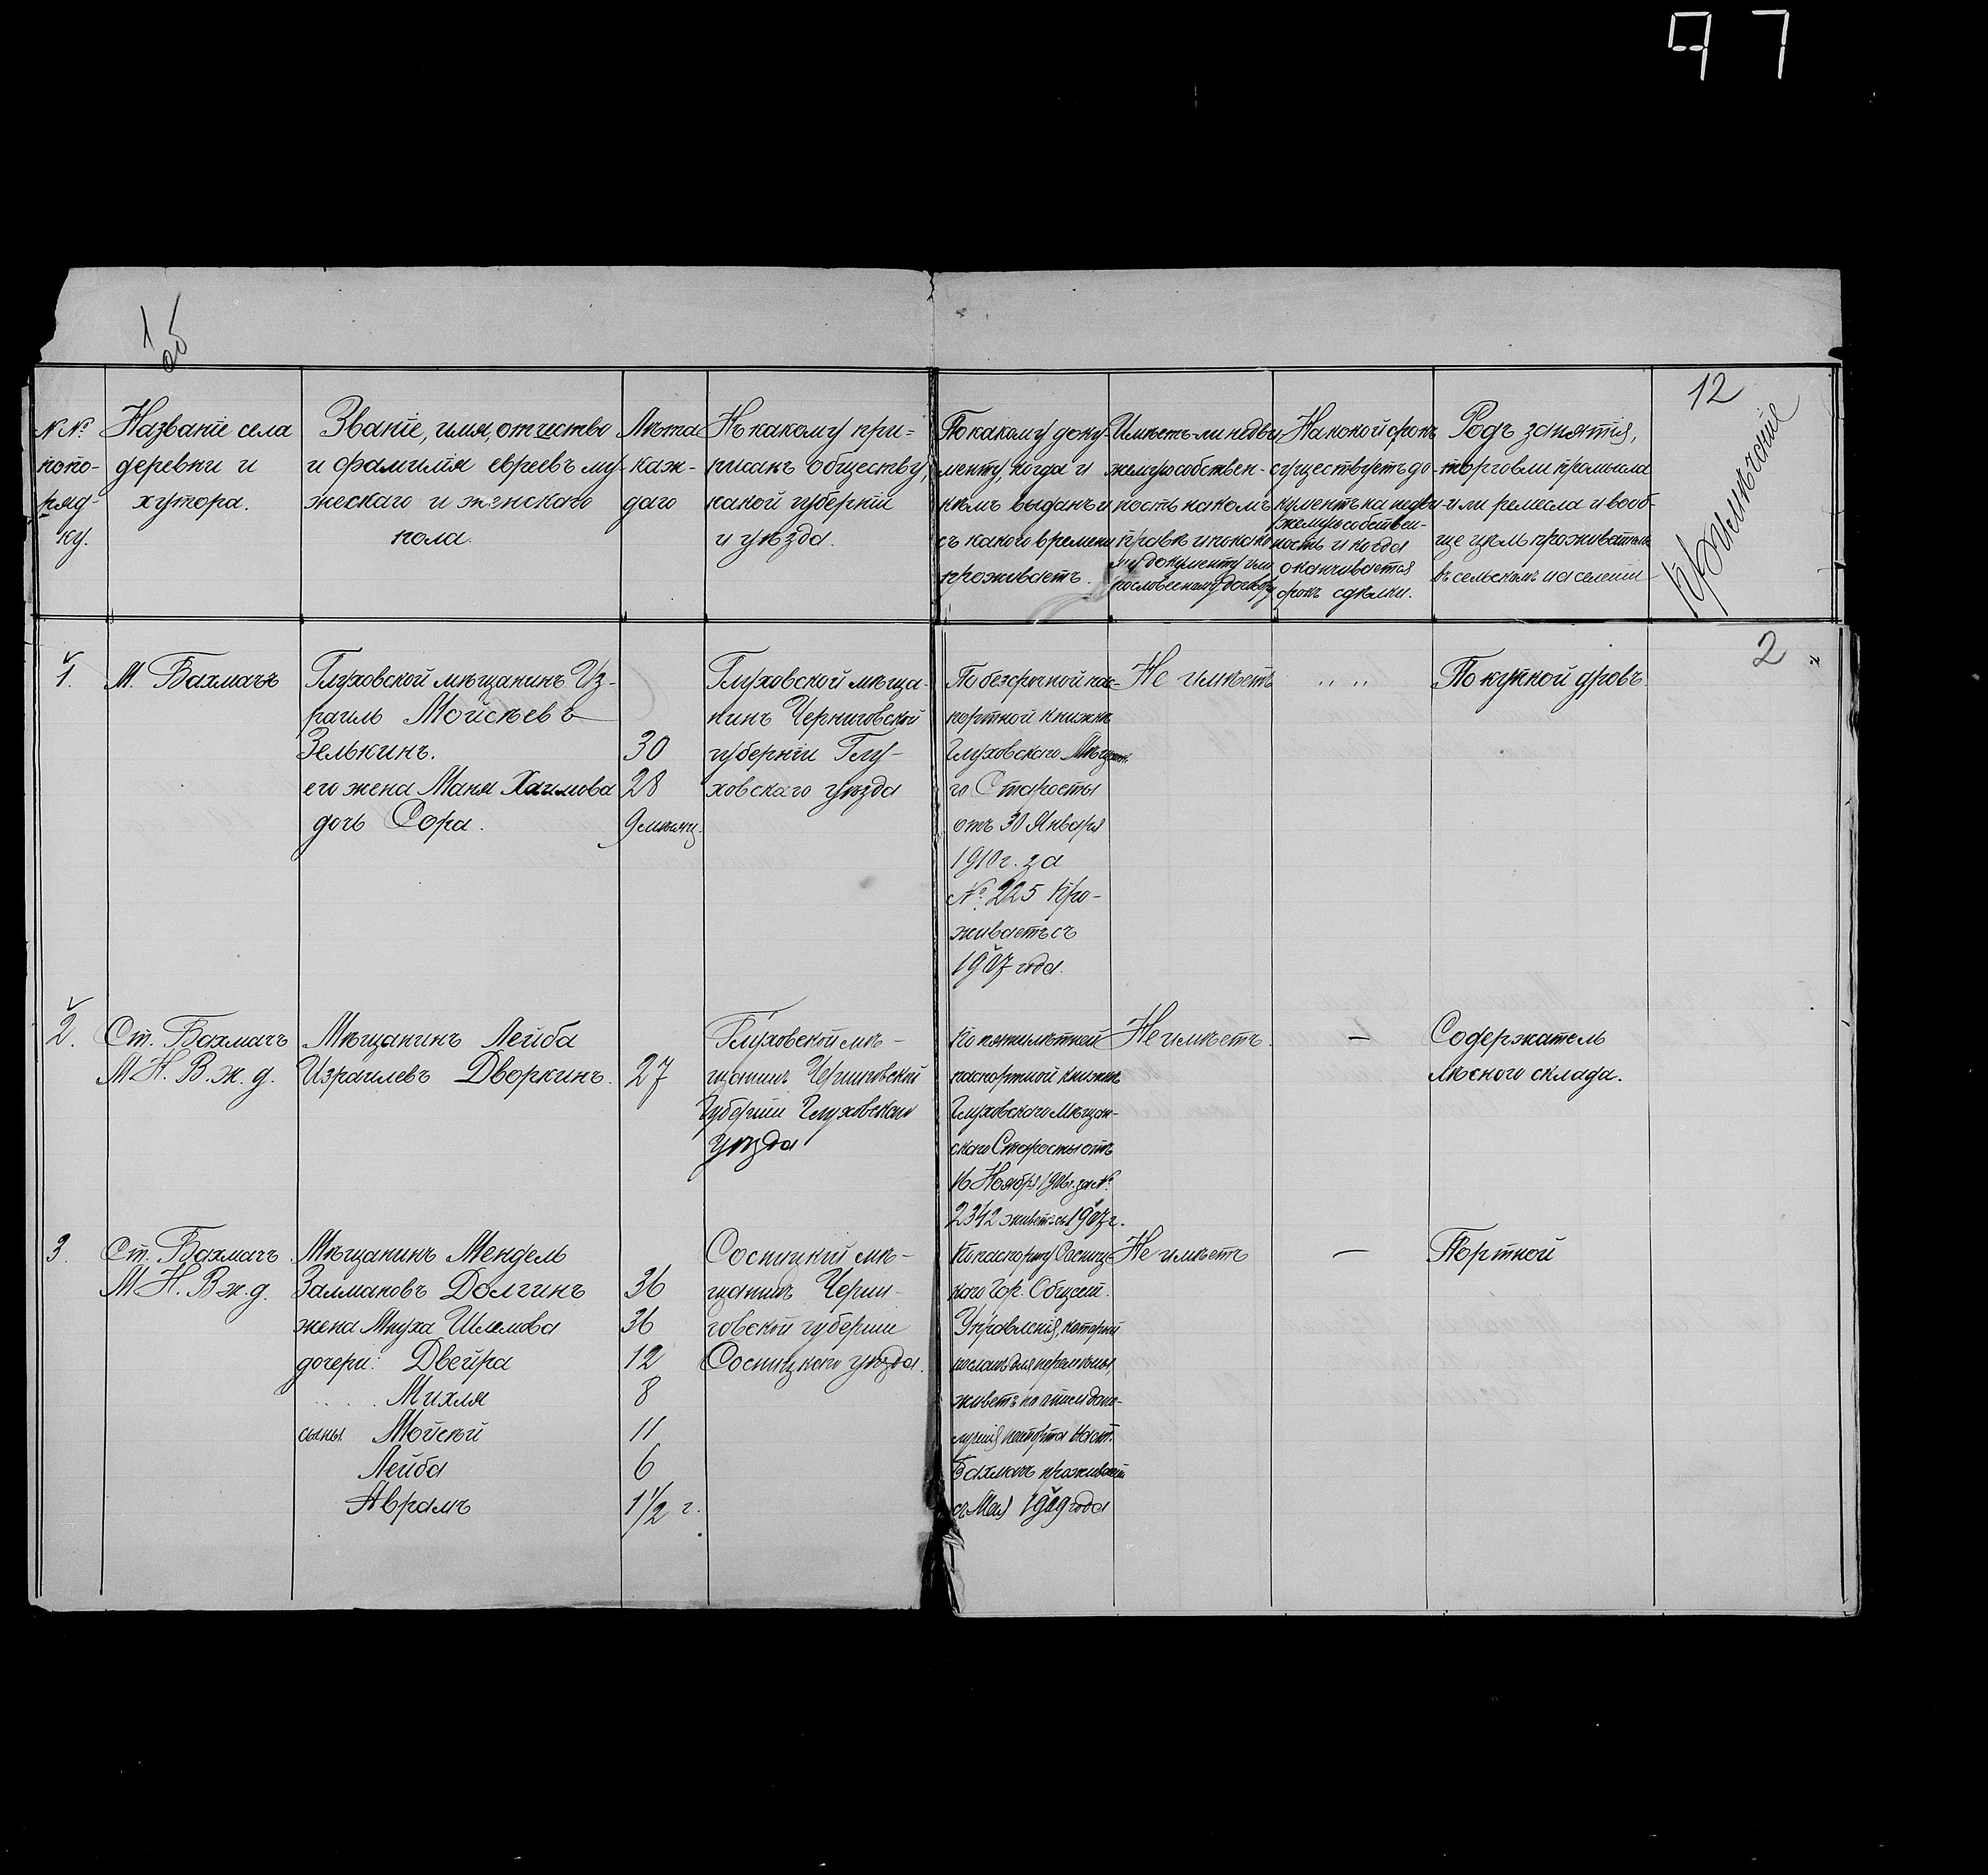 97
1 об
12
№№
попо-
ряд-
ку.
Названіе села
деревни и
хутора.
Званіе, имя, отчество
и фамилія евреевъ му-
жескаго и женскаго
пола.
Лѣта
каж-
даго
Къ какому при-
писанъ обществу,
какой губерніи
и уѣзда.
По какому доку-
менту, когда и
кѣмъ выданъ и
съ какого времени
проживаетъ.
Имѣетъ-ли недви-
жимую собствен-
ность на какомъ
правѣ и по како-
му документу или
рословесному договору
На какой срокъ
существуетъ до-
кументъ на недви-
жимую собствен-
ность и когда
оканчивается
срокъ сдѣлки.
Родъ занятія,
торговли промысла
или ремесла и вооб-
ще цѣль проживательс
въ сельскихъ населеніи
Примѣчаніе
2
1.
М. Бахмачъ
Глуховской мѣщанинъ Из-
раиль Мойсѣевъ
Зелькинъ.
30
его жена Маня Хаимова
28
дочь Сора.
9 мѣсяц.
Глуховской мѣща-
нинъ Черниговской
губерніи Глу-
ховскаго уѣзда
По безсрочной пас-
портной книжкѣ
Глуховского Мѣщанск
го Старосты
отъ 30 Января
1910 г. за
№ 225 Про-
живаетъ съ
1907 года.
Не имѣетъ
" "
Покупкой дровъ
2.
Ст. Бахмачъ
М Н. В. ж. д.
Мѣщанинъ Лейба
Израилевъ Дворкинъ.
27
Глуховской мѣ-
щанинъ Черниговской
Губерніи Глуховскаго
уѣзда
По пятилѣтней
паспортной книжкѣ
Глуховского Мѣщан-
скаго Старосты отъ
16 Ноября 1906 г. за №
2342 живетъ съ 1907 г.
Не имѣетъ.
—
Содержатель
лѣсного склада.
3
Ст. Бахмачъ
М Н. В ж. д.
Мѣщанинъ Мендель
Залмановъ Долгинъ
36
жена Мнуха Шлемова
36
дочери: Двейра
12
Михля
8
сыны Мойсей
11
Лейба
6
Аврамъ
1 1/2 г.
Сосницкій мѣ-
щанинъ Черни-
говской губерніи
Сосницкого уѣзда.
По паспорту Сосниц-
кого Гор. Общест.
Управленія, который
посланъ для перемѣны,
живетъ на ст.
Бахмачъ проживаетъ
съ Мая 1909 года
Не имѣетъ
—
Портной